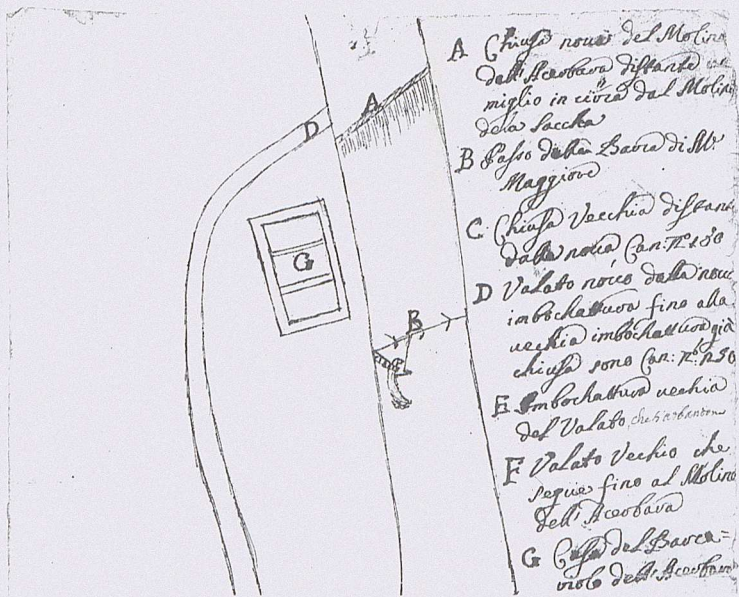 A Chiusa nova del Molino
dell'Acerbara distante un
miglio in circa dal Molino
dela Saccha
B Passo della Barca di Mr
Maggiore
C Chiusa Vecchia distante
dalla nova Can: nº 150
D Valato novo dalla nova
imbochattura fino alla
vechia imbochattura già
chiusa sono Can: nº 150
E Imbochattura vechia
del Valato che
F Valato Vechio che
segue fino al Molino
dell'Acerbara
G Casa del Barca=
rolo dell'Acerbara
D
A
G
B